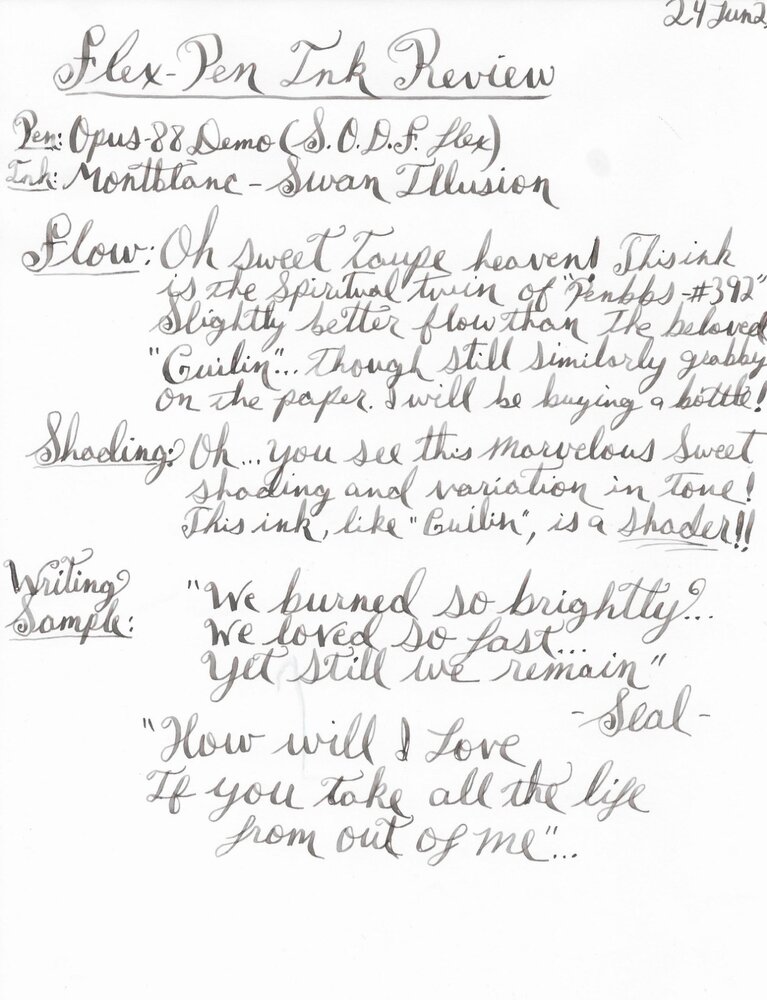 24 Jun2
Flex-Pen Ink Review
Pen: Opus-88 Demo (S.O.D.F. flex)
Ink: Montblanc - Swan Illusion
Flow: Oh sweet taupe heaven! This ink
is the spiritual twin of "Penbbs-#392"
Slightly better flow than the beloved
"Guilin"... though still similarly grabby
on the paper. I will be buying a bottle!
Shading: Oh... you see this marvelous sweet
shading and variation in tone!
This ink, like "Guilin", is a shader!!
Writing
Sample:
"We burned so brightly...
We loved so fast...
Yet still we remain"
-Seal-
"How will I Love
If you take all the life
from out of me"...